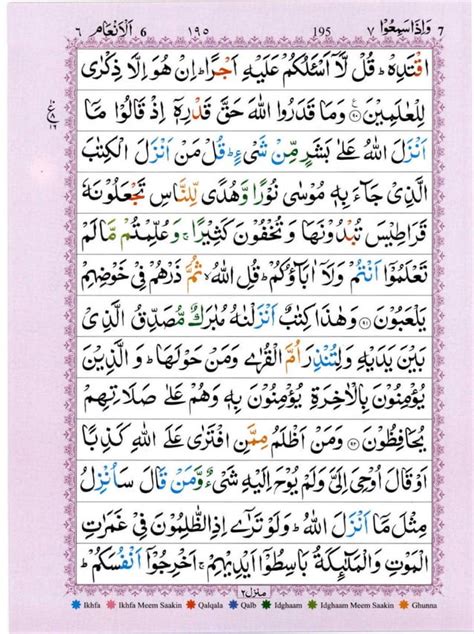 وَاِذَاسَمِعُوْا ٧ 7 195 ١٩٥ اَلْاَنْعَام 6 ٦
اقْتَدِهْ ؕ قُلْ لَّاۤ اَسْـَٔلُكُمْ عَلَيْهِ اَجْرًا ؕ اِنْ هُوَ اِلَّا ذِكْرٰى
لِلْعٰلَمِيْنَ ۝٩٠ وَمَا قَدَرُوا اللّٰهَ حَقَّ قَدْرِهٖۤ اِذْ قَالُوْا مَاۤ
اَنْزَلَ اللّٰهُ عَلٰى بَشَرٍ مِّنْ شَيْءٍ ؕ قُلْ مَنْ اَنْزَلَ الْكِتٰبَ
الَّذِيْ جَآءَ بِهٖ مُوْسٰى نُوْرًا وَّهُدًى لِّلنَّاسِ تَجْعَلُوْنَهٗ
قَرَاطِيْسَ تُبْدُوْنَهَا وَتُخْفُوْنَ كَثِيْرًا ۚ وَعُلِّمْتُمْ مَّا لَمْ
تَعْلَمُوْۤا اَنْتُمْ وَلَاۤ اٰبَآؤُكُمْ ؕ قُلِ اللّٰهُ ۙ ثُمَّ ذَرْهُمْ فِيْ خَوْضِهِمْ
يَلْعَبُوْنَ ۝٩١ وَهٰذَا كِتٰبٌ اَنْزَلْنٰهُ مُبٰرَكٌ مُّصَدِّقُ الَّذِيْ
بَيْنَ يَدَيْهِ وَلِتُنْذِرَ اُمَّ الْقُرٰى وَمَنْ حَوْلَهَا ؕ وَالَّذِيْنَ
يُؤْمِنُوْنَ بِالْاٰخِرَةِ يُؤْمِنُوْنَ بِهٖ وَهُمْ عَلٰى صَلَاتِهِمْ
يُحَافِظُوْنَ ۝٩٢ وَمَنْ اَظْلَمُ مِمَّنِ افْتَرٰى عَلَى اللّٰهِ كَذِبًا
اَوْ قَالَ اُوْحِيَ اِلَيَّ وَلَمْ يُوْحَ اِلَيْهِ شَيْءٌ وَّمَنْ قَالَ سَاُنْزِلُ
مِثْلَ مَاۤ اَنْزَلَ اللّٰهُ ؕ وَلَوْ تَرٰۤى اِذِ الظّٰلِمُوْنَ فِيْ غَمَرٰتِ
الْمَوْتِ وَالْمَلٰٓئِكَةُ بَاسِطُوْۤا اَيْدِيْهِمْ ۚ اَخْرِجُوْۤا اَنْفُسَكُمْ ؕ
منزل ٢
Ikhfa Ikhfa Meem Saakin Qalqala Qalb Idghaam Idghaam Meem Saakin Ghunna